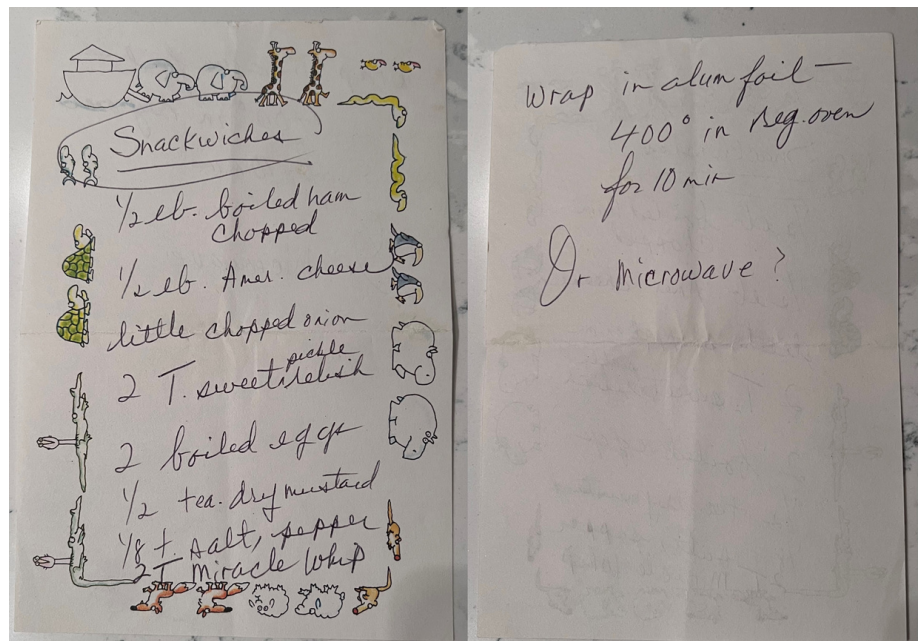 Snackwiches
1/2 lb. boiled ham
chopped
1/2 lb. Amer. cheese
little chopped onion
2 T. sweet pickle relish
2 boiled eggs
1/2 tea. dry mustard
1/8 t. salt, pepper
2 T miracle whip
Wrap in alum foil —
400° in Reg. oven
for 10 min
Or microwave?